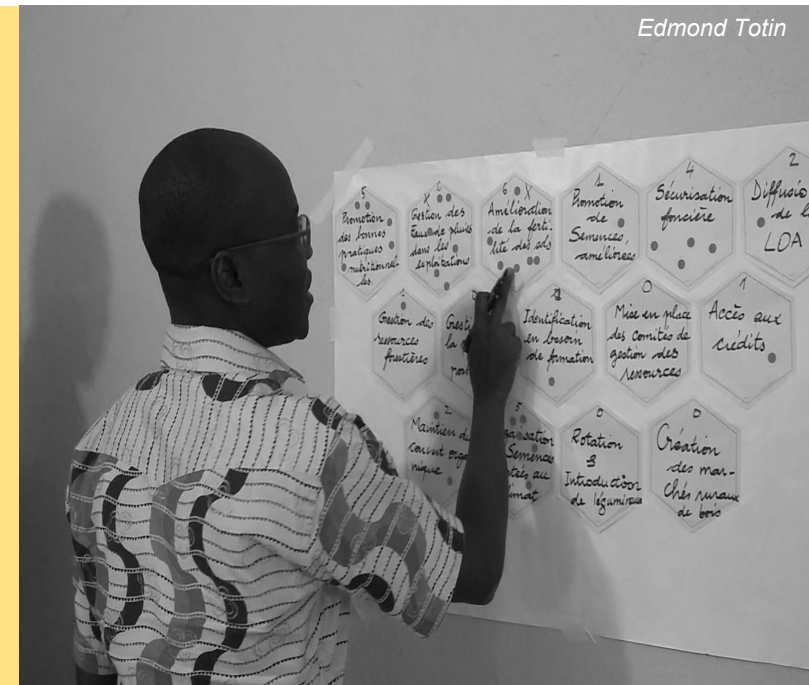 Edmond Totin
5
Promotion
des bonnes
pratiques
nutritionnel-
les
6 X
Gestion des
Eaux de pluies
dans les
exploitations
6 X
Amélioration
de la ferti-
lité des sols
1
Promotion
de
Semences
améliorées
4
Sécurisation
foncière
2
Diffusio
de l
LOA
Gestion des
ressources
forestières
Gesti
la
pou
Identification
en besoin
de formation
0
Mise en place
des comités de
gestion des
ressources
1
Accès aux
crédits
2
Maintien du
couvert orga
nique
5
sation
Semences
tées au
imat
0
Rotation
&
Introduction
de légumineux
0
Création
des mar-
chés ruraux
de bois